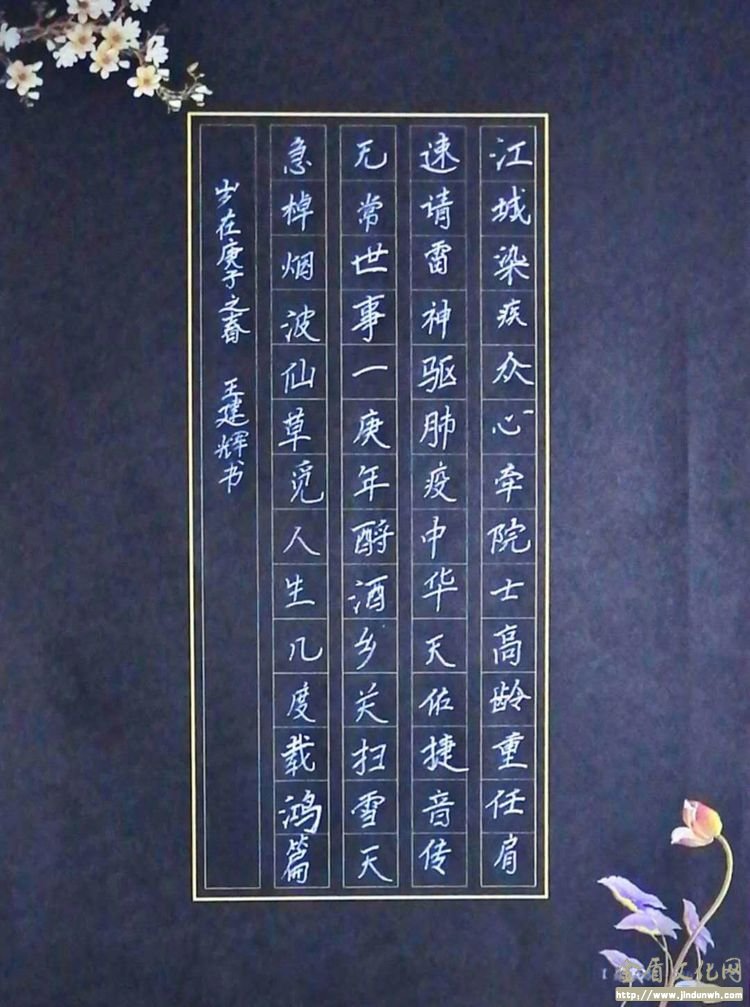 江城染疾众心牵院士高龄重任肩
速请雷神驱肺疫中华天佑捷音传
无常世事一庚年酹酒乡关扫雪天
急棹烟波仙草觅人生几度载鸿篇
岁在庚子之春 王建辉书
金盾文化网
http://www.jindunwh.com